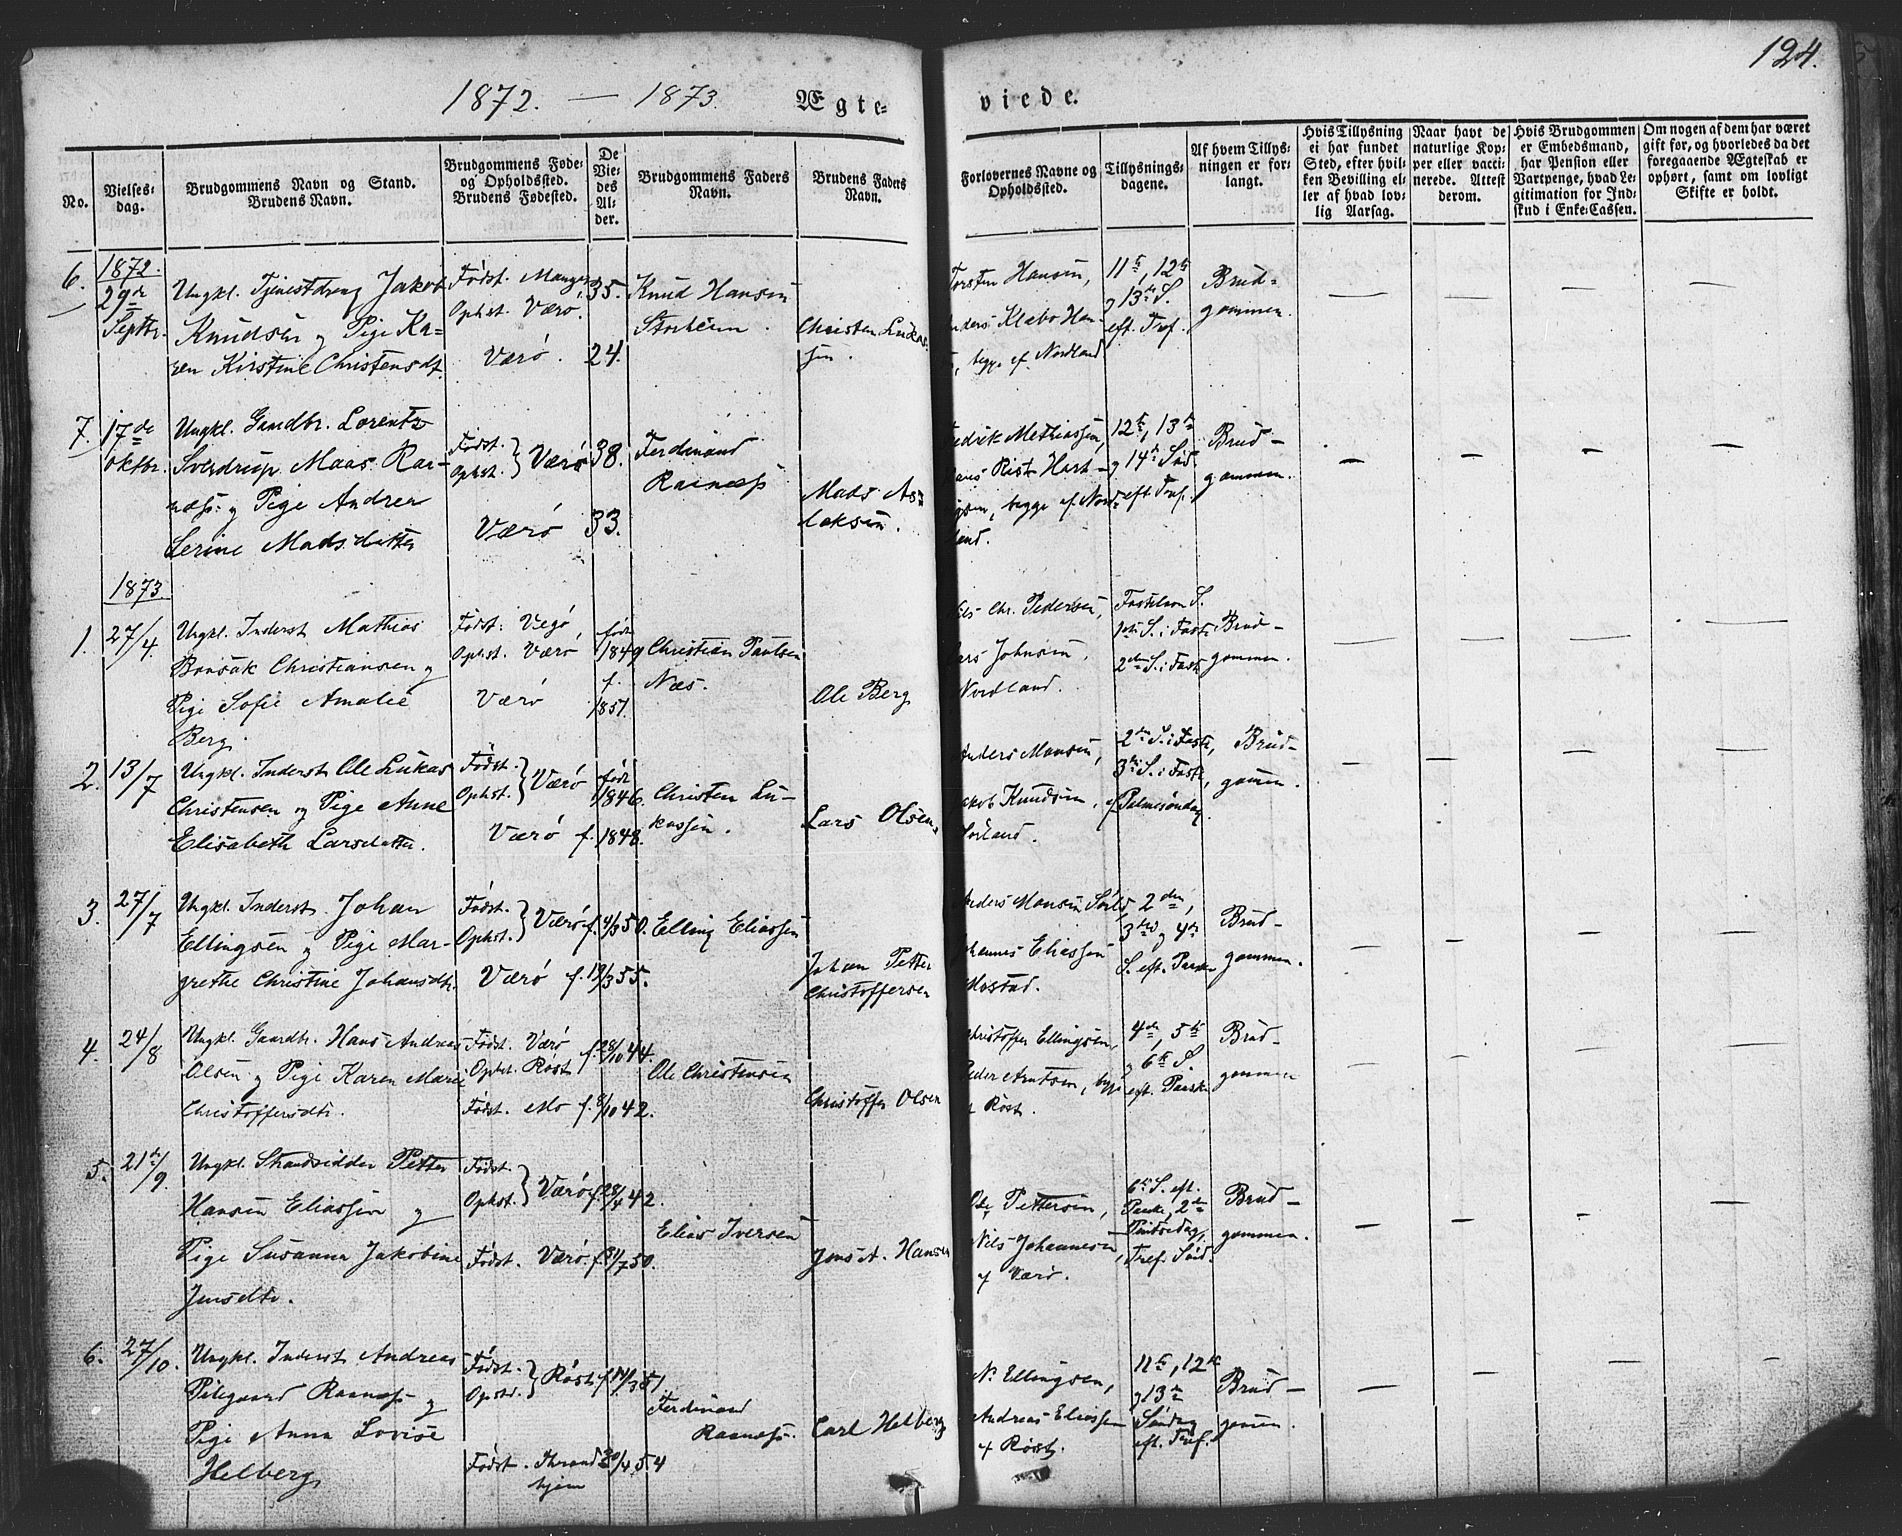 124.
1872. — 1873. Ægte= viede.
No.
Vielses-
dag.
Brudgommens Navn og Stand.
Brudens Navn.
Brudgommens Føde-
og Opholdssted.
Brudens Fødested.
De
Vie-
des
Al-
der.
Brudgommens Faders
Navn.
Brudens Faders
Navn.
Forlovernes Navne og
Opholdssted.
Tillysnings-
dagene.
Af hvem Tillys-
ningen er for-
langt.
Hvis Tillysning
ei har fundet
Sted, efter hvil-
ken Bevilling el-
ler af hvad lov-
lig Aarsag.
Naar havt de
naturlige Kop-
per eller vacci-
nerede. Attest
derom.
Hvis Brudgommen
er Embedsmand,
har Pension eller
Vartpenge, hvad Le-
gitimation for Ind-
skud i Enke-Cassen.
Om nogen af dem har været
gift før, og hvorledes da det
foregaaende Ægteskab er
ophørt, samt om lovligt
Skifte er holdt.
6.
1872.
29de
Septbr.
Ungkl. Tjenestdreng Jakob
Knudsen og Pige Ka-
ren Kirstine Christensdt.
Født. Manger
Ophst. Værø.
Værø.
35.
24.
Knud Hansen
Storheim.
Christen Lukas-
sen.
Torsten Hansen,
Anders Klæbo Han-
begge af Nordland
11te, 12te
og 13de S.
eft. Tref.
Brud-
gommen.
7.
17de
Oktbr.
Ungkl. Gaardbr. Lorentz
Sverdrup Maas Rar-
næss og Pige Andrea
Serine Madsdatter
Født.
Ophst. } Værø
Værø
38.
33.
Ferdinand
Rarnæss
Mads As-
laksen.
Fredrik Mathiassen,
Hans Rist Hart-
vigsen, begge af Nord-
land.
12te, 13de
og 14de Sød.
eft. Tref.
Brud-
gommen.
1873.
1.
27/4.
Ungkl. Inderst Mathias
Bonsak Christiansen og
Pige Sofie Amalie
Berg.
Født: Vegø
Ophst. Værø
Værø
født
1849
f.
1851.
Christian Paulsen
Næs.
Ole Berg
Nils Chr. Pedersen,
Lars Johnsen,
Nordland.
Fastelavn S.
1ste S. i Faste
2den S. i Faste
Brud-
gommen.
2.
13/7
Ungkl. Inderst Ole Lukas
Christensen og Pige Anne
Elisabeth Larsdatter.
Født.
Ophst. } Værø
Værø
født
1846.
f. 1848.
Christen Lu-
kassen.
Lars Olsen
Anders Monsen,
Jakob Knudsen,
Sørland.
2den S. i Faste,
3die S. i Faste,
og Palmesøndag
Brud-
gommen.
3.
27/7
Ungkl. Inderst. Johan
Ellingsen og Pige Mar-
grethe Christine Johansdtr.
Født.
Ophst. } Værø
Værø
f. 4/3 50.
f. 19/3 55.
Elling Eliassen
Johan Petter
Christoffersen
Anders Monsen Sørld
Johannes Eliassen
Mostad.
2den,
3die og 4de
S. eft. Paaske
Brud-
gommen.
4.
24/8
Ungkl. Gaardbr. Hans Andreas
Olsen og Pige Karen Marie
Christoffersdtr.
Født. Værø
Ophst. Røst
Født. Mo
f. 28/10 44.
f. 8/10 42.
Ole Christensen
Christoffer Olsen
Christoffer Ellingsen,
Peder Arntsen, begge
af Røst.
4de, 5te
og 6te S.
eft. Paaske
Brud-
gommen
5.
21de/9.
Ungkl. Strandsidder Petter
Hansen Eliassen og
Pige Susanna Jakobine
Jensdtr.
Født.
Ophst. } Værø
Født. Værø.
f. 28/4 42.
f. 31/7 50.
Elias Iversen
Jens A. Hansen
Ole Pettersen,
Nils Johannesen,
af Værø.
6te S. eft.
Paaske, 2den
Pintsedag,
Tref. Sød.
Brud-
gommen.
6.
27/10.
Ungkl. Inderst Andreas
Pilegaard Rarnæss og
Pige Anna Lovise
Helberg
Født.
Opst. } Røst
Født. Thrond-
hjem
f. 14/3 51
30/4 54
Ferdinand
Rarnæss.
Carl Helberg
N. Ellingsen,
Andreas Eliassen
af Røst.
11te, 12te
og 13de
Søndag
eft. Tref.
Brud-
gommen.